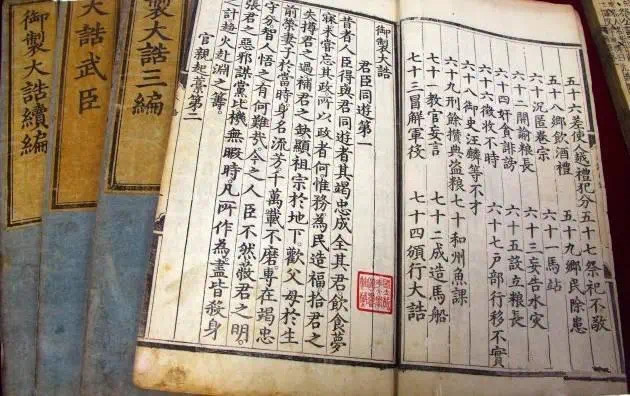 五十六差使人越禮犯分 五十七祭祀不敬
五十八鄉飲酒禮 五十九鄉民除患
六十沉匿卷宗 六十一馬站
六十二開諭糧長 六十三妄告水災
六十四奸貪誹謗 六十五設立糧長
六十六徵收不時 六十七戶部行移不實
六十八御史汪麟等不才
六十九刑餘攢典盜糧 七十和州魚課
七十一教官妄言 七十二成造馬船
七十三冒解軍役 七十四頒行大誥
御製大誥
君臣同遊第一
昔者人臣得與君同遊者其竭忠成全其君飲食夢
寐未嘗忘其政所以政者何惟務為民造福拾君之
失撙君之過補君之缺顯祖宗於地下歡父母於生
前榮妻子於當時身名流芳千萬載不磨專在竭忠
守分智人悟之有何難哉今之人臣不然蔽君之明。
張君之惡邪謀黨比機無暇時凡所作為盡皆殺身
之計趨火赴淵之籌。
官親起稾第二
製大誥三編
大誥武臣
御製大誥續編